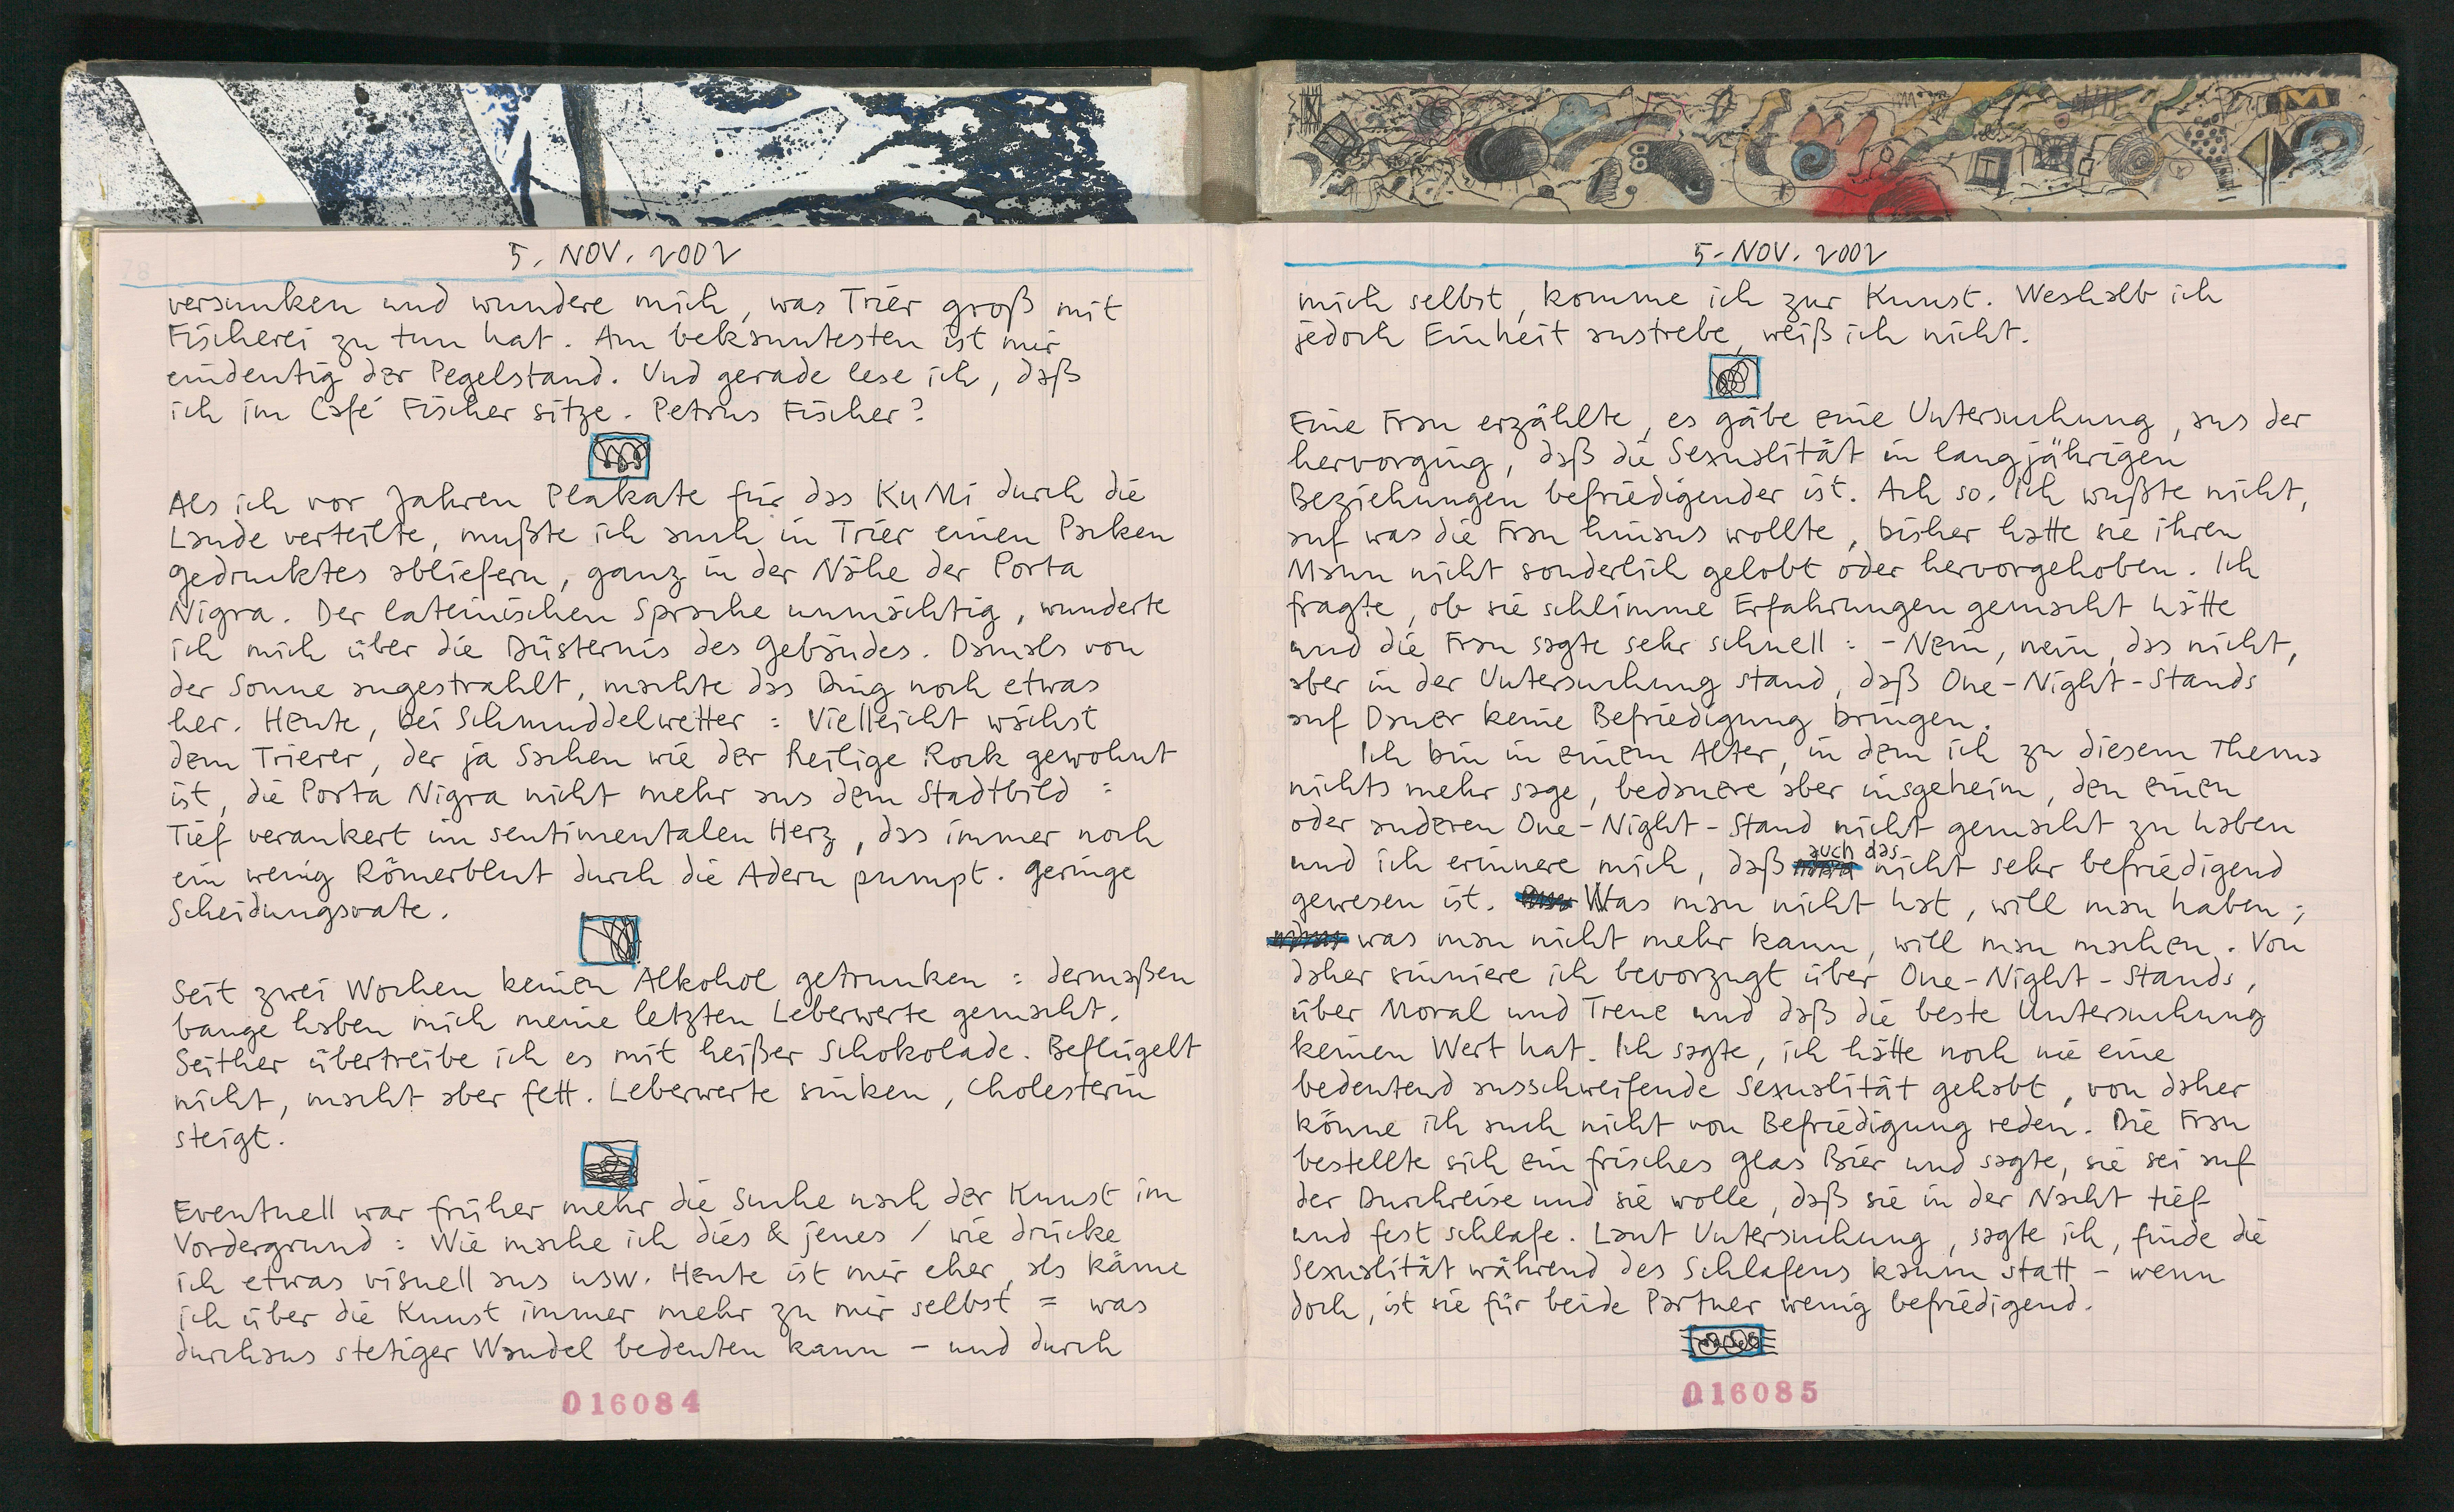 5. NOV. 2002
versunken und wundere mich, was Trier groß mit
Fischerei zu tun hat. Am bekanntesten ist mir
eindeutig der Pegelstand. Und gerade lese ich, daß
ich im Café Fischer sitze. Petrus Fischer?
Als ich vor Jahren Plakate für das KuMi durch die
Lande verteilte, mußte ich auch in Trier einen Packen
gedrucktes abliefern, ganz in der Nähe der Porta
Nigra. Der lateinischen Sprache unmächtig, wunderte
ich mich über die Düsternis des Gebäudes. Damals von
der Sonne angestrahlt, machte das Ding noch etwas
her. Heute, bei Schmuddelwetter: Vielleicht wächst
dem Trierer, der ja Sachen wie der Heilige Rock gewohnt
ist, die Porta Nigra nicht mehr aus dem Stadtbild:
Tief verankert im sentimentalen Herz, das immer noch
ein wenig Römerblut durch die Adern pumpt. Geringe
Scheidungsrate.
Seit zwei Wochen keinen Alkohol getrunken: dermaßen
bange haben mich meine letzten Leberwerte gemacht.
Seither übertreibe ich es mit heißer Schokolade. Beflügelt
nicht, macht aber fett. Leberwerte sinken, Cholesterin
steigt.
Eventuell war früher mehr die Suche nach der Kunst im
Vordergrund: Wie mache ich dies & jenes / wie drücke
ich etwas visuell aus usw. Heute ist mir eher, als käme
ich über die Kunst immer mehr zu mir selbst = was
durchaus stetiger Wandel bedeuten kann – und durch
016084
5. NOV. 2002
mich selbst, komme ich zur Kunst. Weshalb ich
jedoch Einheit anstrebe, weiß ich nicht.
Eine Frau erzählte, es gäbe eine Untersuchung, aus der
hervorging, daß die Sexualität in langjährigen
Beziehungen befriedigender ist. Ach so. Ich wußte nicht,
auf was die Frau hinaus wollte, bisher hatte sie ihren
Mann nicht sonderlich gelobt oder hervorgehoben. Ich
fragte, ob sie schlimme Erfahrungen gemacht hätte
und die Frau sagte sehr schnell: - Nein, nein, das nicht,
aber in der Untersuchung stand, daß One-Night-Stands
auf Dauer keine Befriedigung bringen.
Ich bin in einem Alter, in dem ich zu diesem Thema
nichts mehr sage, bedauere aber insgeheim, den einen
oder anderen One-Night-Stand nicht gemacht zu haben
und ich erinnere mich, daß auch das nicht sehr befriedigend
gewesen ist. Was man nicht hat, will man haben;
was man nicht mehr kann, will man machen. Von
daher sinniere ich bevorzugt über One-Night-Stands,
über Moral und Treue und daß die beste Untersuchung
keinen Wert hat. Ich sagte, ich hätte noch nie eine
bedeutend ausschweifende Sexualität gehabt, von daher
könne ich auch nicht von Befriedigung reden. Die Frau
bestellte sich ein frisches Glas Bier und sagte, sie sei auf
der Durchreise und sie wolle, daß sie in der Nacht tief
und fest schlafe. Laut Untersuchung, sagte ich, finde die
Sexualität während des Schlafens kaum statt – wenn
doch, ist sie für beide Partner wenig befriedigend.
016085